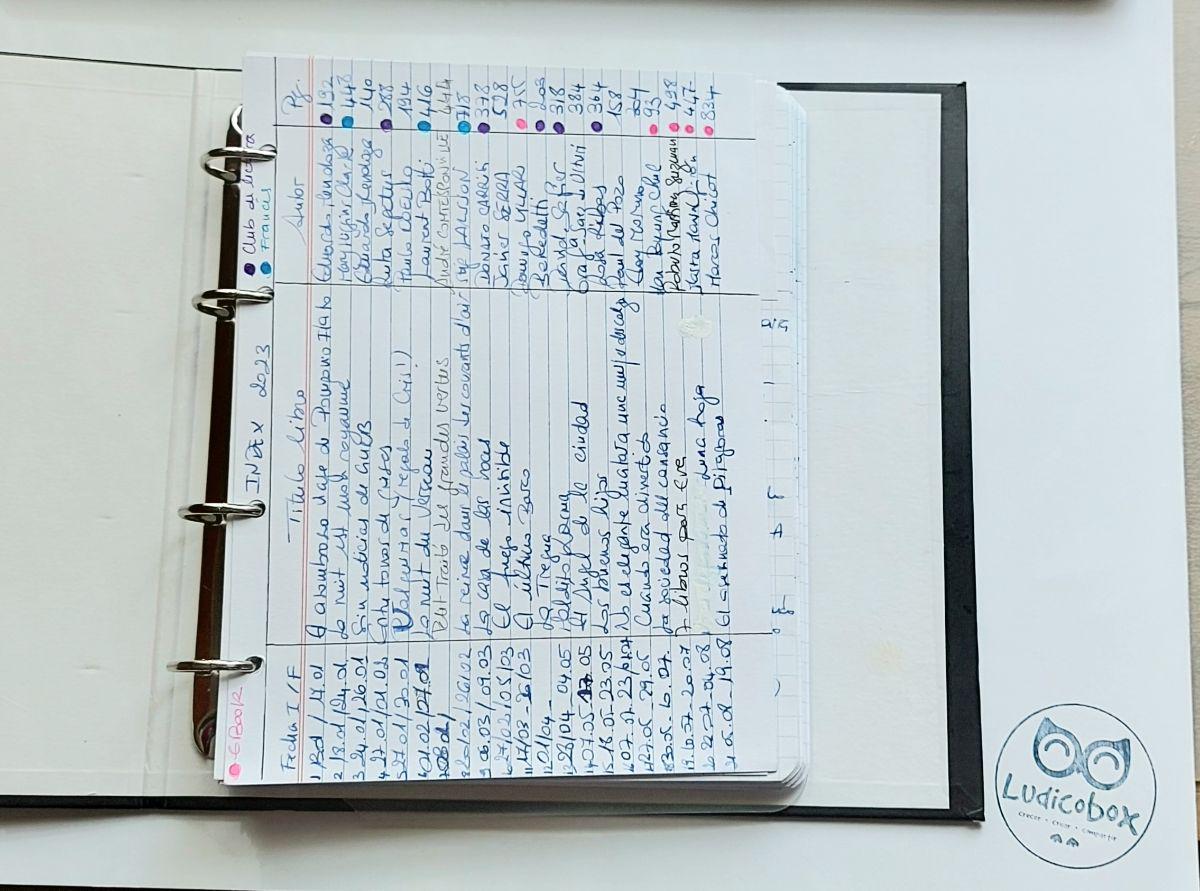 EBook
INDEX 2023
Club de lectura
Francés
Fecha I/F Título libro Autor Pg.
1 El asombroso viaje de Pomponio Flato Eduardo Mendoza 192
2 18.01/24.01 La nuit est mon royaume Mary Higgins Clark 448
3 24.01/26.01 Sin noticias de GURB Eduardo Mendoza 140
4 27.01/21.02 Entre tonos de grises Ruta Sepetys 288
5 27.01/30.01 Valkirias (regalo de Cris!) Paulo Coelho 194
6 01.02/27.02 La nuit du Verseau Laurent Botti 416
7 Petit Traité des grandes vertus André COMTE SPONVILLE 444
8 20/02/26/02 La reine dans le palais des courants d'air 715
9 06.03/09.03 La casa de las voces DONATO CARRISI 378
10 27/02/05/03 El fuego invisible Javier SIERRA 528
11 17/03-26/03 El último Barco Domingo VILLAR 755
12 01/04- La Tregua Benedetti 203
13 28/04-04.05 Maldito Karma David Safier 318
14 07.05 17.05 El Ángel de la ciudad Eva Gª Sáez de Urturi 384
15 18.05-23.05 Los buenos hijos Rosa Ribas 364
16 No es elegante matar a una mujer descalza Raúl del Pozo 158
17 27.05-29.05 Cuando era divertido Eloy Moreno 204
18 30.05-10.07. La sociedad del cansancio Han Byung-Chul 93
19 19.10.07-20.07 7 libros para Eva Roberto Martínez Guzmán 498
20 22.07-04.08 Luna Roja 447
21 05.08-19.08 El asesinato de Pitágoras Marcos Chicot 834
Ludicobox
crecer · crear · compartir